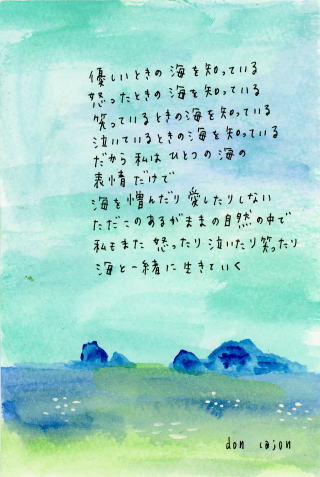 優しいときの海を知っている
怒ったときの海を知っている
笑っているときの海を知っている
泣いているときの海を知っている
だから私はひとつの海の
表情だけで
海を憎んだり愛したりしない
ただこのあるがままの自然の中で
私もまた怒ったり泣いたり笑ったり
海と一緒に生きていく
don cajon